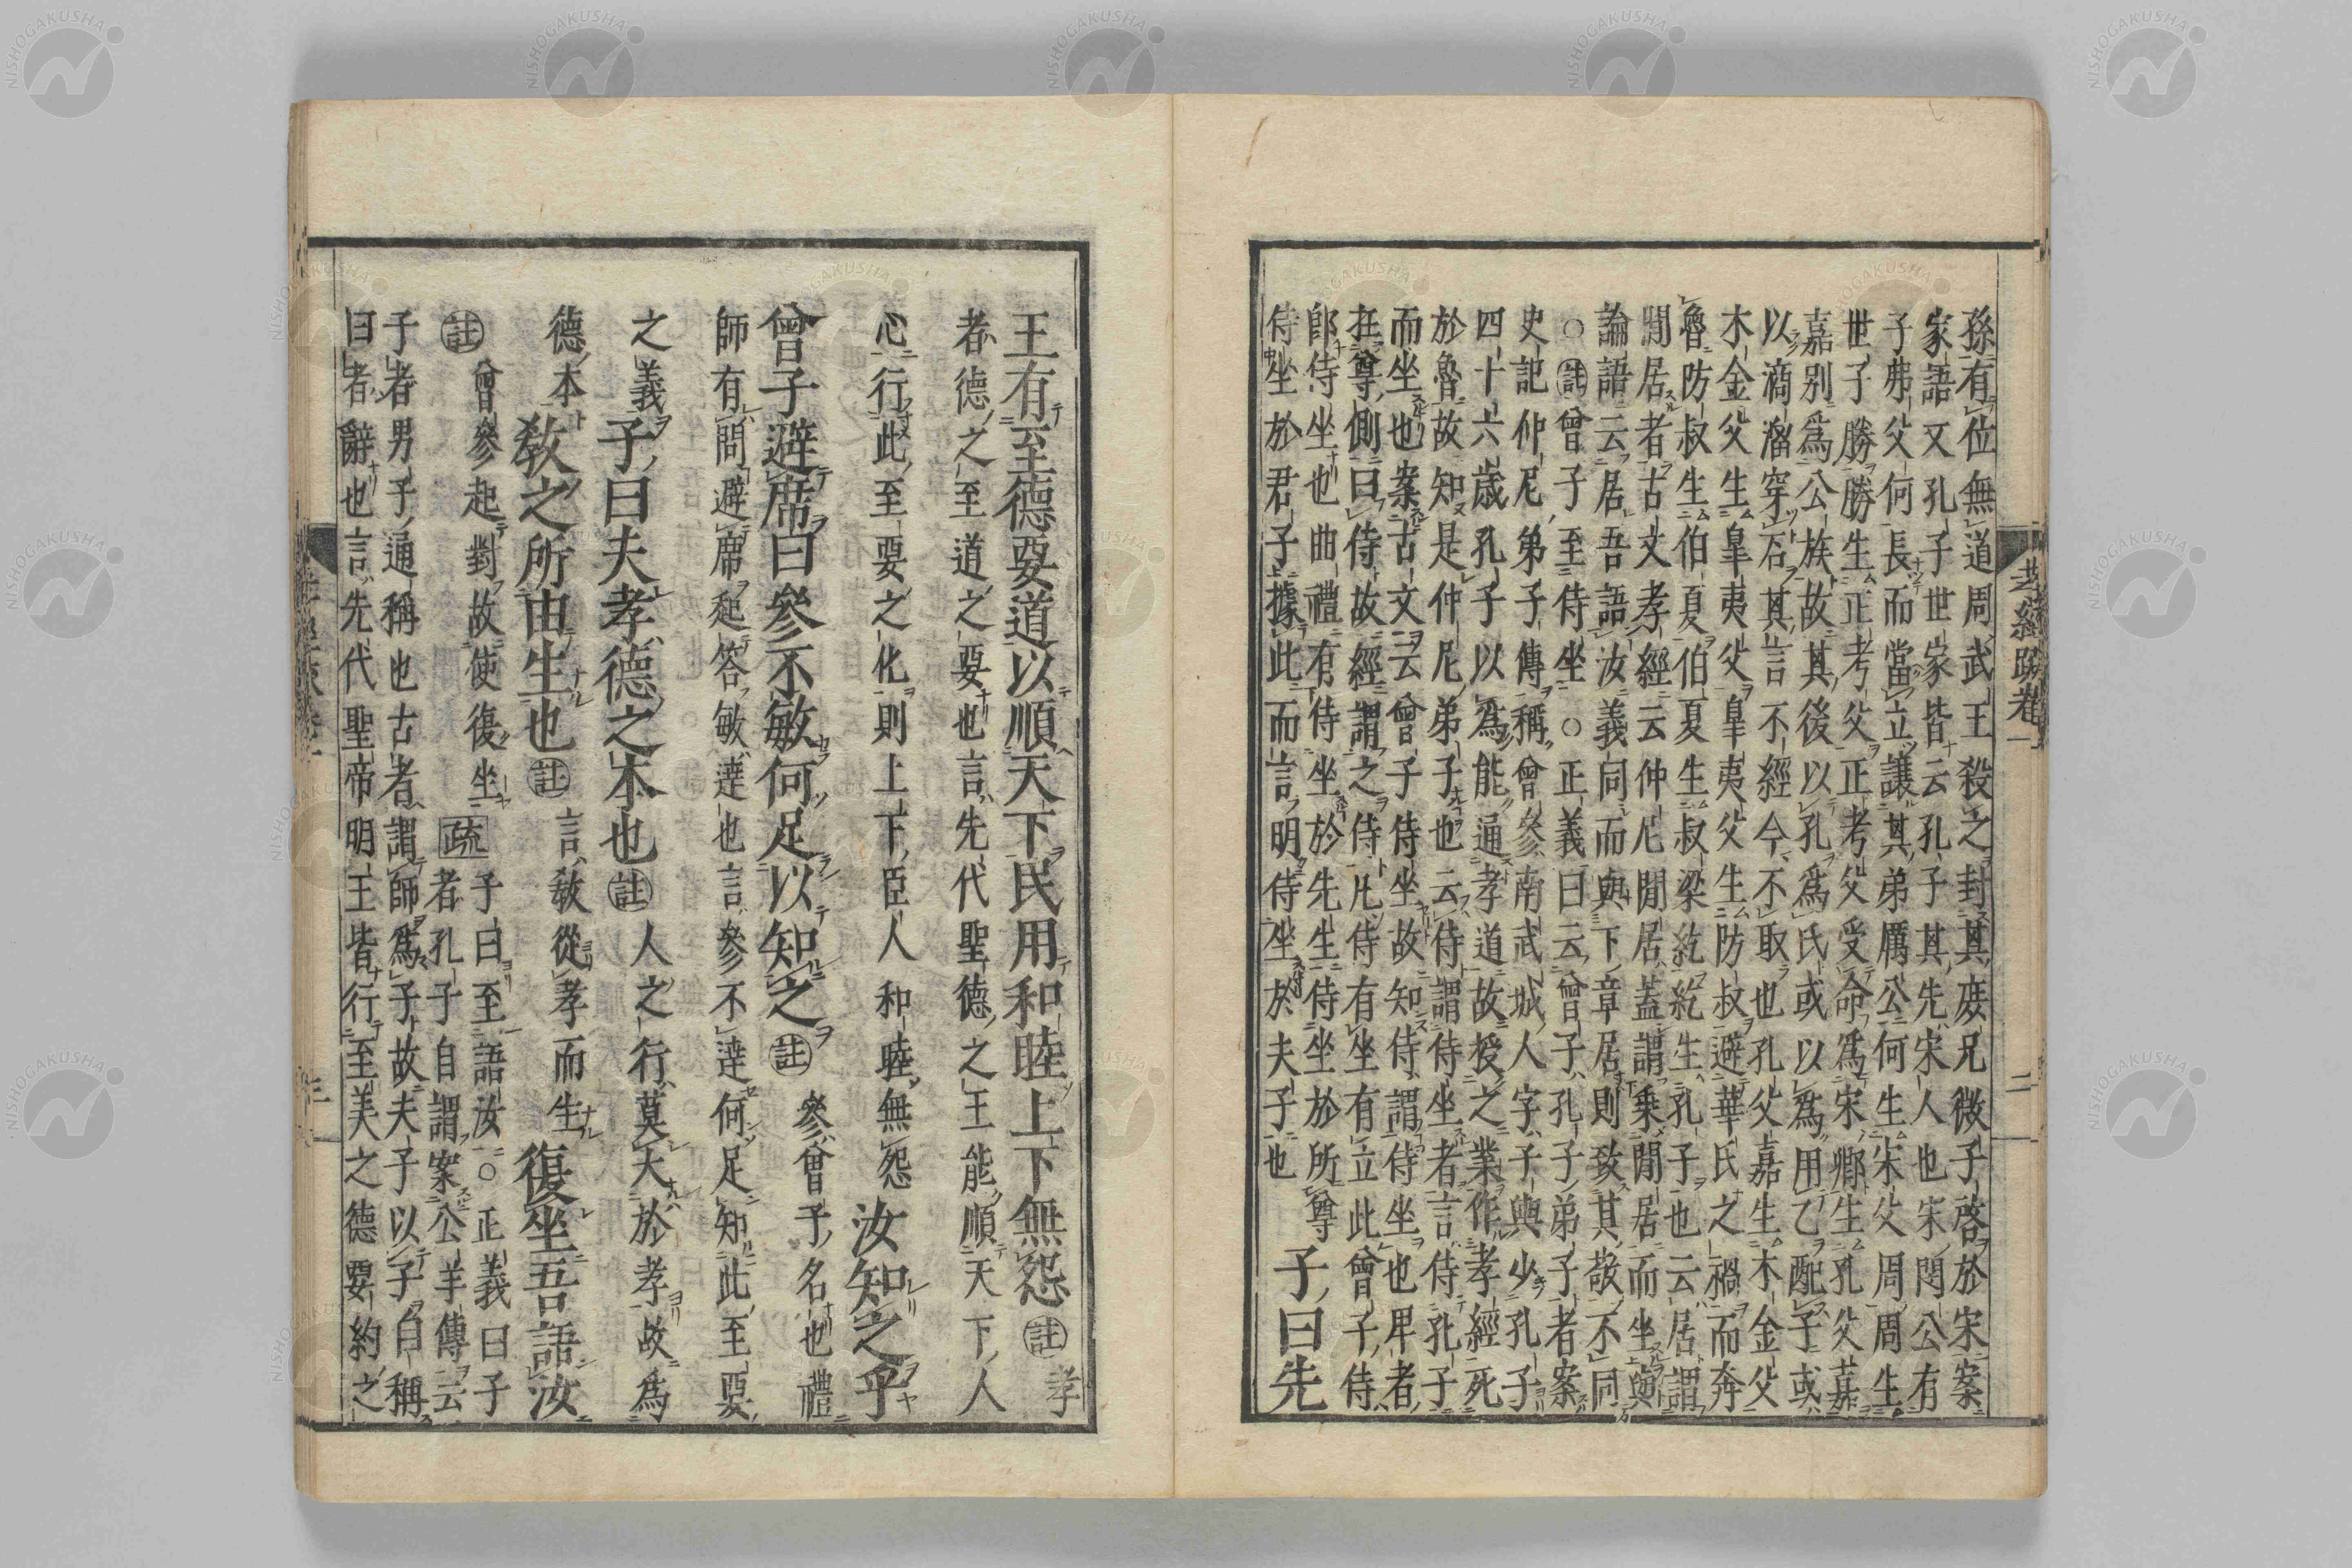 孫有位無道周武王殺之封其庶兄微子啓於宋案
家語又孔子世家皆云孔子其先宋人也宋閔公有
子弗父何長而當立讓其弟厲公何生宋父周周生
世子勝勝生正考父正考父受命爲宋卿生孔父嘉
嘉別爲公族故其後以孔爲氏或以爲用乙配子或
以滴溜穿石其言不經今不取也孔父嘉生木金父
木金父生皐夷父皐夷父生防叔避華氏之禍而奔
魯防叔生伯夏伯夏生叔梁紇紇生孔子也云居謂
閒居者古文孝經云仲尼閒居蓋謂乗閒居而坐與
論語云居吾語汝義同而與下章居則致其敬不同
○註曾子至侍坐○正義曰云曾子孔子弟子者案
史記仲尼弟子傳稱曾參南武城人字子輿少孔子
四十六歳孔子以爲能通孝道故授之業作孝經死
於魯故知是仲尼弟子也云侍謂侍坐者言侍孔子
而坐也案古文云曾子侍坐故知侍謂侍坐也卑者
在尊側曰侍故經謂之侍凡侍有坐有立此曾子侍
卽侍坐也曲禮有侍坐於先生侍坐於所尊
侍坐於君子據此而言明侍坐於夫子也
子曰先
孝經䟽卷一
二
王有至德要道以順天下民用和睦上下無怨註孝
者德之至道之要也言先代聖德之王能順天下人
心行此至要之化則上下臣人和睦無怨汝知之乎
曾子避席曰參不敏何足以知之註參曾子名也禮
師有問避席起答敏達也言參不達何足知此至要
之義子曰夫孝德之本也註人之行莫大於孝故爲
德本敎之所由生也註言敎從孝而生復坐吾語汝
註曾參起對故使復坐疏子曰至語汝○正義曰子
者孔子自謂案公羊傳云
子者男子通稱也古者謂師爲子故夫子以子自稱
曰者辭也言先代聖帝明王皆行至美之德要約之